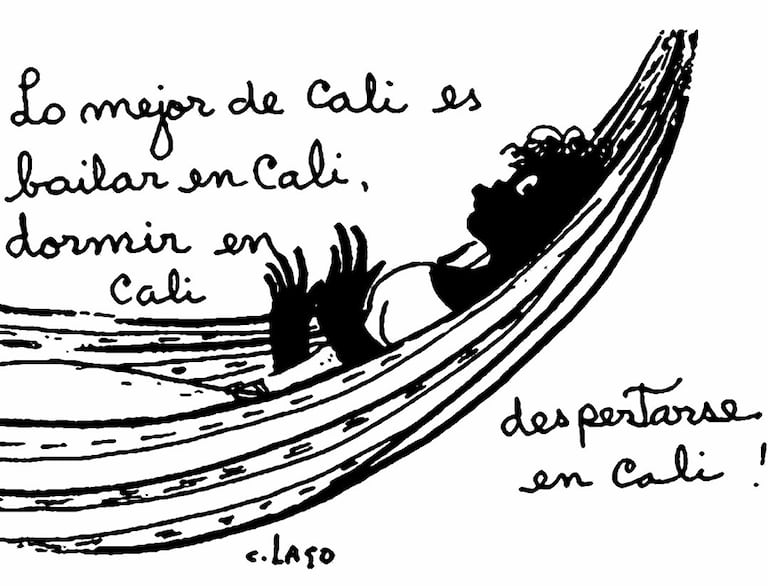 Lo mejor de Cali es
bailar en Cali,
dormir en
Cali
despertarse
en Cali !
c. LAGO